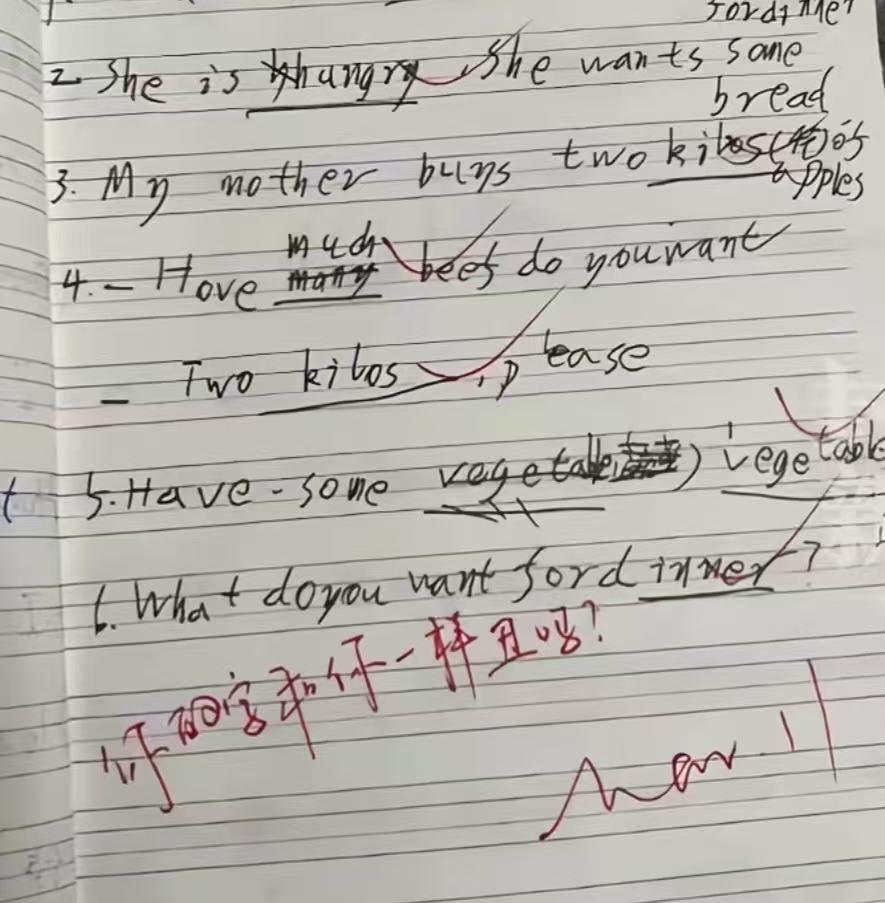 for dinner
2. She is hungry She wants some
bread
3. My mother buys two kilos(千克)of
apples
much
4. - How many beef do you want
- Two kilos, please
5. Have some vegetable) vegetable
6. What do you want for dinner?
你的字和你一样丑吗?
Mar. 11